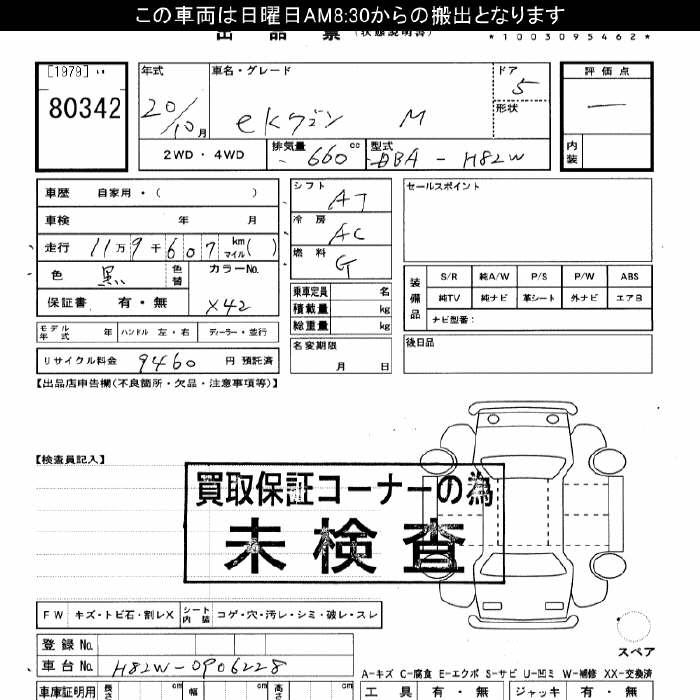 この車両は日曜日AM8:30からの搬出となります
出品票 (状態説明書)
*1003095462*
[1979]
80342
年式 車名・グレード ドア 評価点
20/10月 eKワゴン M 5 —
形状
2WD・4WD 排気量 660cc 型式 DBA-H82W 内装
車歴 自家用・( )
車検 年 月
走行 11万9千607 km マイル( )
色 黒 色替 カラーNo.
保証書 有・無 X42
モデル年式 年 ハンドル 左・右 ディーラー・並行
リサイクル料金 9460 円 預託済
シフト AT
冷房 AC
燃料 G
乗車定員 名
積載量 kg
総重量 kg
名変期限
月 日
セールスポイント
装備品 S/R 純A/W P/S P/W ABS
純TV 純ナビ 革シート 外ナビ エアB
ナビ型番:
後日品
【出品店申告欄(不良箇所・欠品・注意事項等)】
【検査員記入】
買取保証コーナーの為
未検査
FW キズ・トビ石・割レX シート内装 コゲ・穴・汚レ・シミ・破レ・スレ
スペア
登録No.
車台No. H82W-0906228
A-キズ C-腐食 E-エクボ S-サビ U-凹ミ W-補修 XX-交換済
車庫証明用 長さ cm 幅 cm 高さ cm 工具 有・無 ジャッキ 有・無